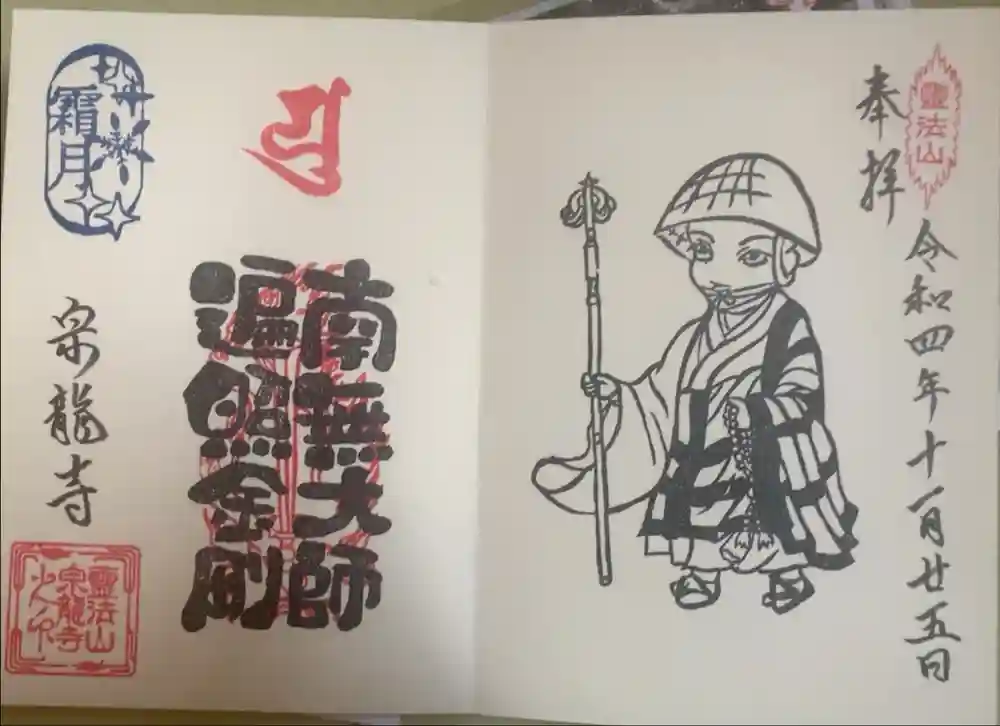 靈法山
奉拝
令和四年十一月廿五日
南無大師
遍照金剛
霜月
泉龍寺
靈法山
泉龍寺